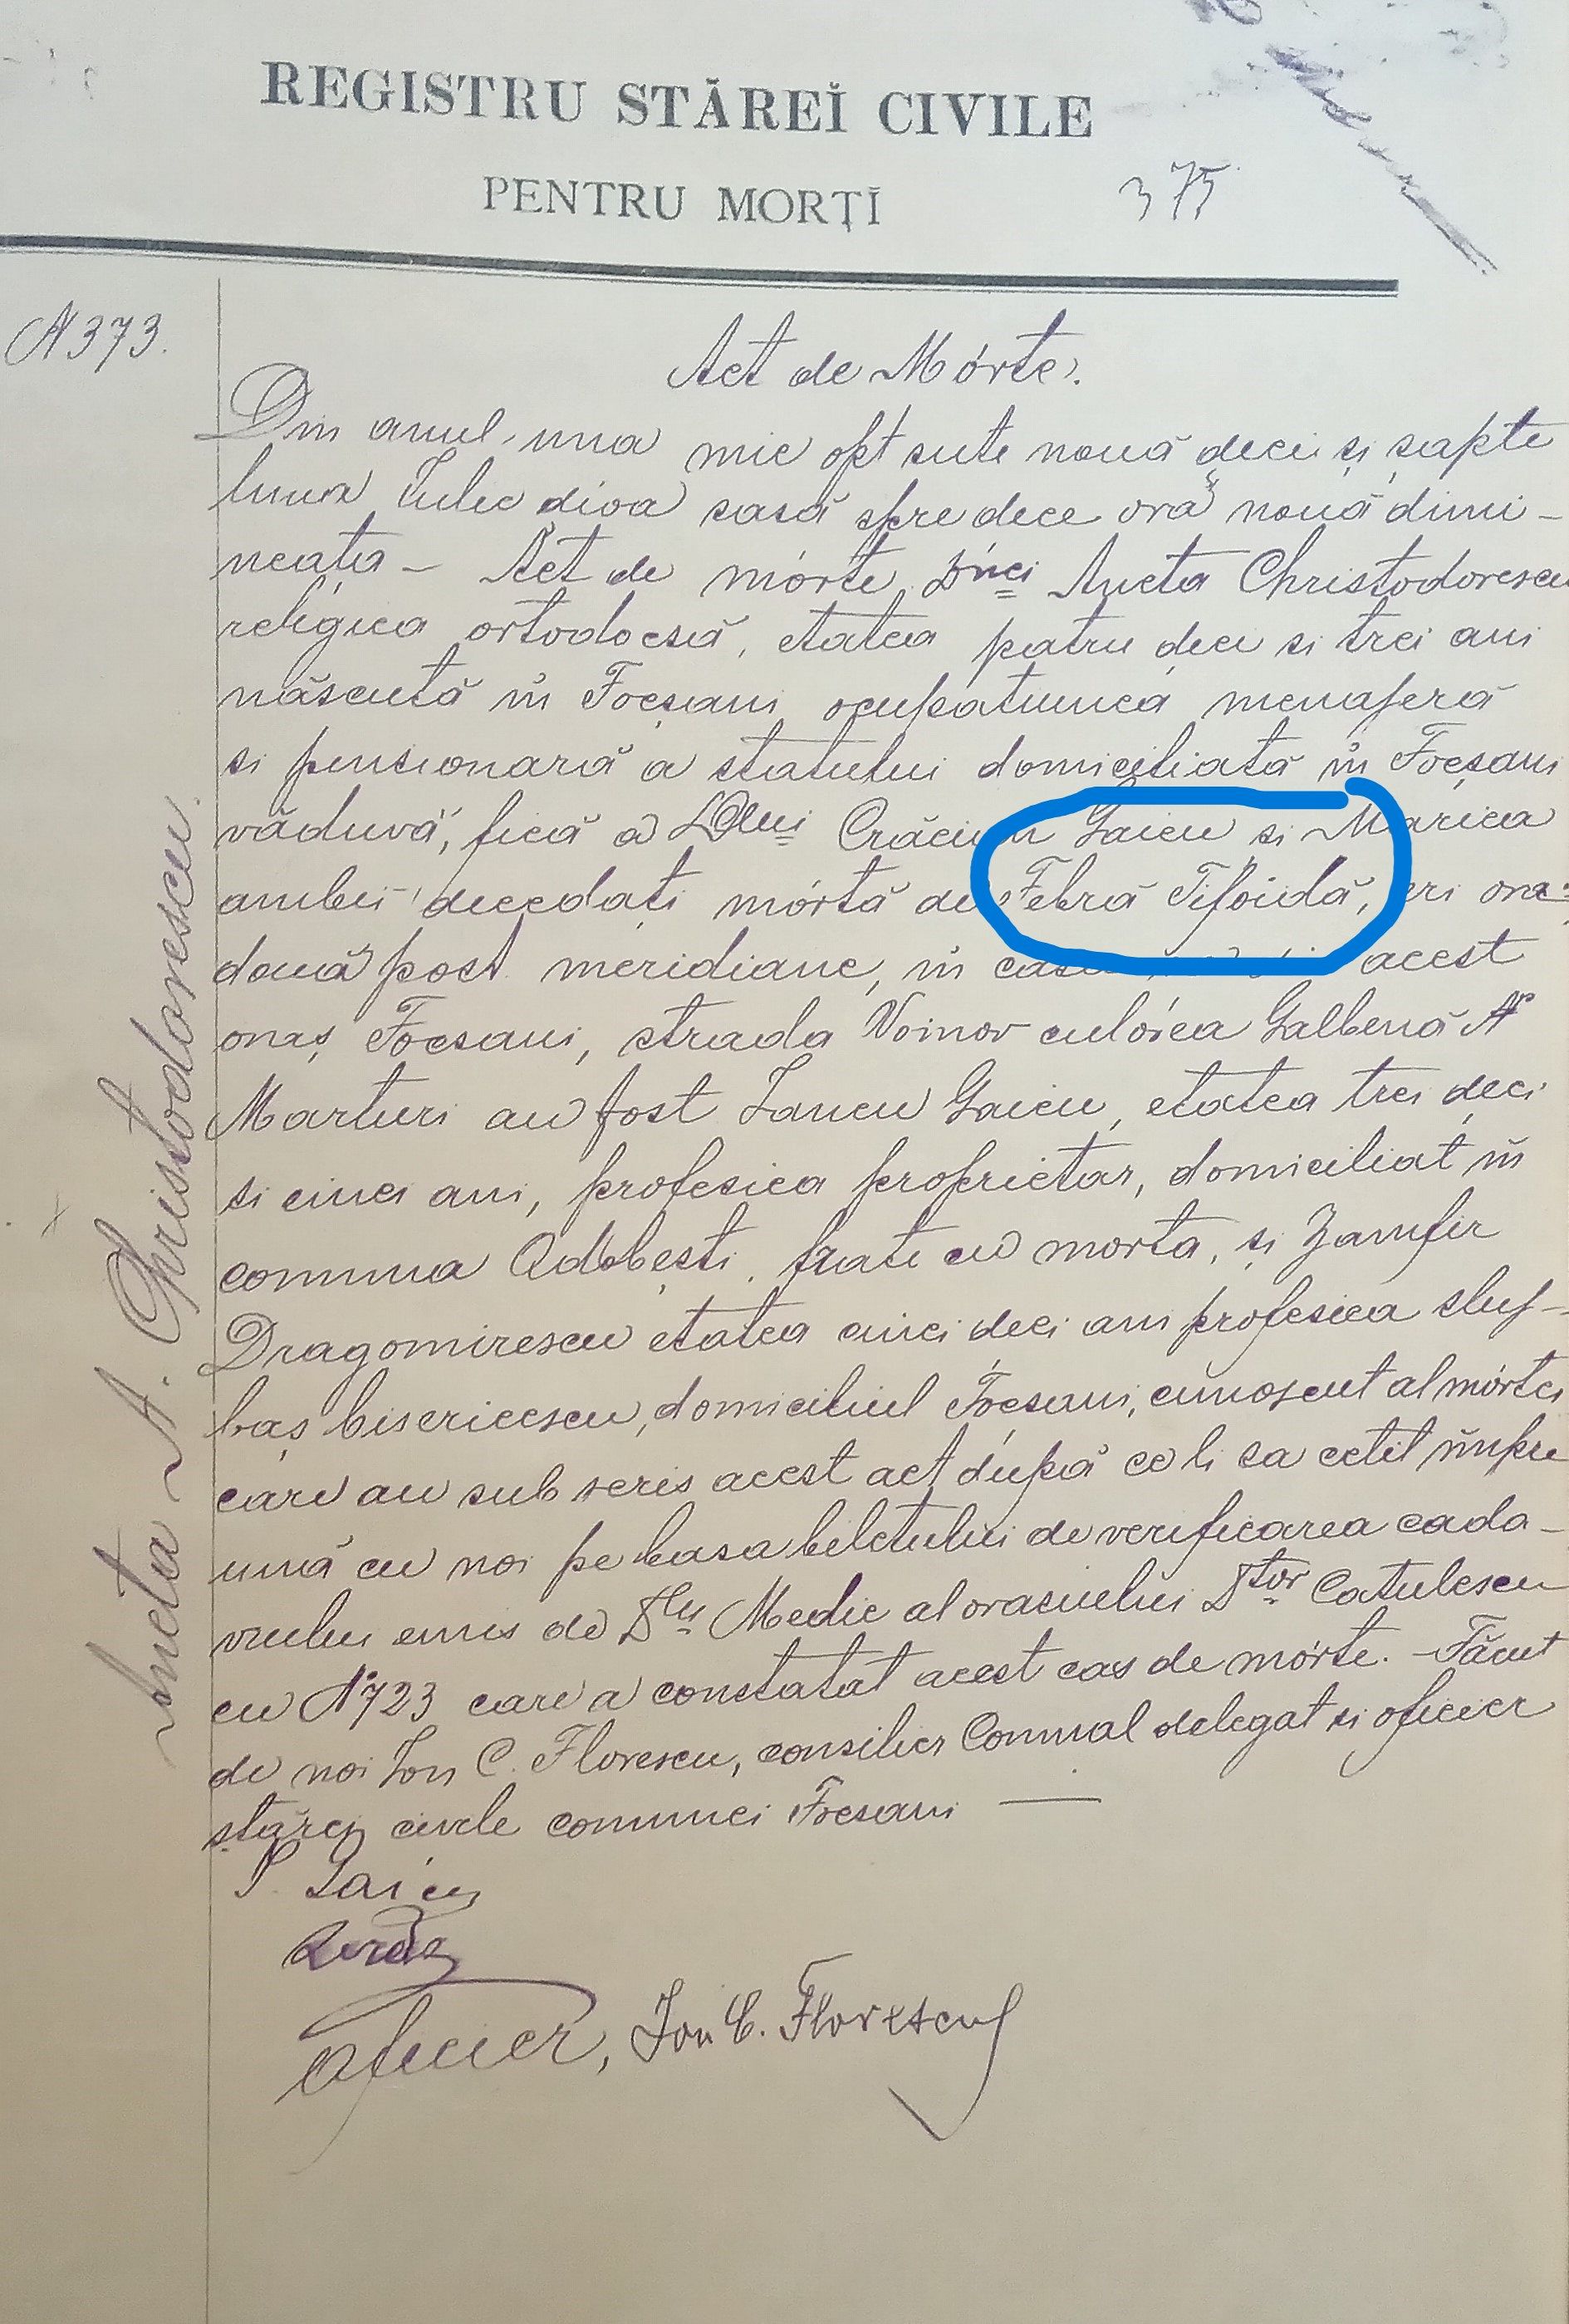 REGISTRU STĂREĬ CIVILE
PENTRU MORȚĬ
375
N 373.
Act de Mórte.
Din anul una mie opt sute nouă deci și șapte
luna Iulie dioa șasă spre dece ora nouă dimi-
neața - Act de mórte D̲nei Aneta Christodorescu
religiea ortodocsă, etatea patru deci si trei ani
născută în Focșani ocupațiunea menajeră
si pensionară a statului domiciliată în Focșani
văduvă, fică a Crăciun Gaicu si Marica
ambii decedați mórtă de Febră Tifoidă, eri ora
două post meridiane, în casa acest
oraș Focsani, strada Voinov culórea Galbenă N
Marturi au fost Iancu Gaicu, etatea trei deci
si cinci ani, profesiea proprietar, domiciliat în
comuna Odobești, frate cu morta, și Zamfir
Dragomirescu etatea cinci deci ani profesiea sluj-
baș bisericescu, domiciliul Focsani, cunoscut al mórtei
care au sub scris acest act după ce li sa cetit împre
ună cu noi pe basa biletului de verificarea cada-
vrului emis de D̲lu Medic al orașului D̲tor Catulescu
cu N 723 care a constatat acest cas de mórte. - Făcut
de noi Ion C. Florescu, consilier Comunal delegat si oficier
stărei civile comunei Focsani —
Gaicu
oficier, Ion C. Florescu
Aneta A. Christodorescu.